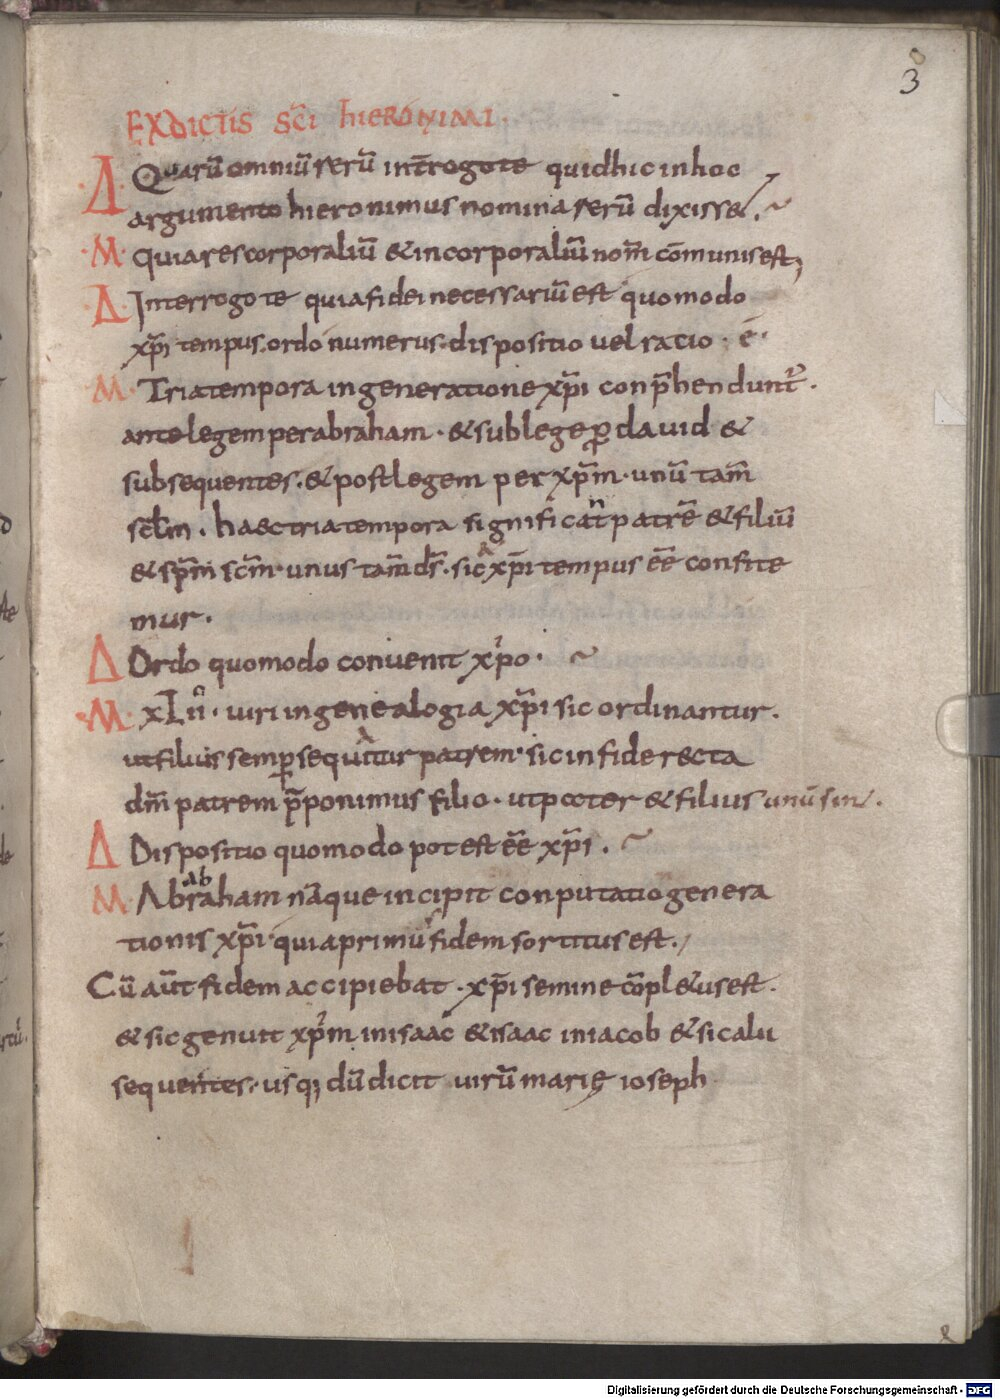 3
EX DICTIS SCĪ HIERONIMI.
Δ Quarū omniū rerū int̄rogo te quid hic in hoc
argumento hieronimus nomina rerū dixisset.
M Quia res corporaliū & incorporaliū nom̄ com̄unis est;
Δ Interrogo te quia fidei necessariū est quomodo
xp̄i tempus. ordo numerus. dispositio vel ratio. ē.
M Tria tempora in generatione xp̄i conp̄hendunt̄.
ante legem per abraham. & sub lege ꝓ dauid &
subsequentes. & post legem per xp̄m. unū tam̄
scl̄m. haec tria tempora significant̄ patrē & filiū
& sp̄m scm̄. unus tam̄ ds̄. sic & xp̄i tempus eē confite
mur.
Δ Ordo quomodo conuenit xp̄o.
M xLii. uiri in genealogia xp̄i sic ordinantur.
ut filius semꝑ sequatur patrem. sic in fide recta
dm̄ patrem p̄ponimus filio. ut pater & filius unū sint.
Δ Dispositio quomodo potest eē xp̄i.
M Ab abraham nāque incipit conputatio genera
tionis xp̄i. quia primus fidem sortitus est.
Cū aūt fidem accipiebat. xp̄i semine com̄pl&us est.
& sic genuit xp̄m in isaac & isaac in iacob & sic alii
sequentes. usq; dū dicit uirū marię ioseph
Digitalisierung gefördert durch die Deutsche Forschungsgemeinschaft - DFG